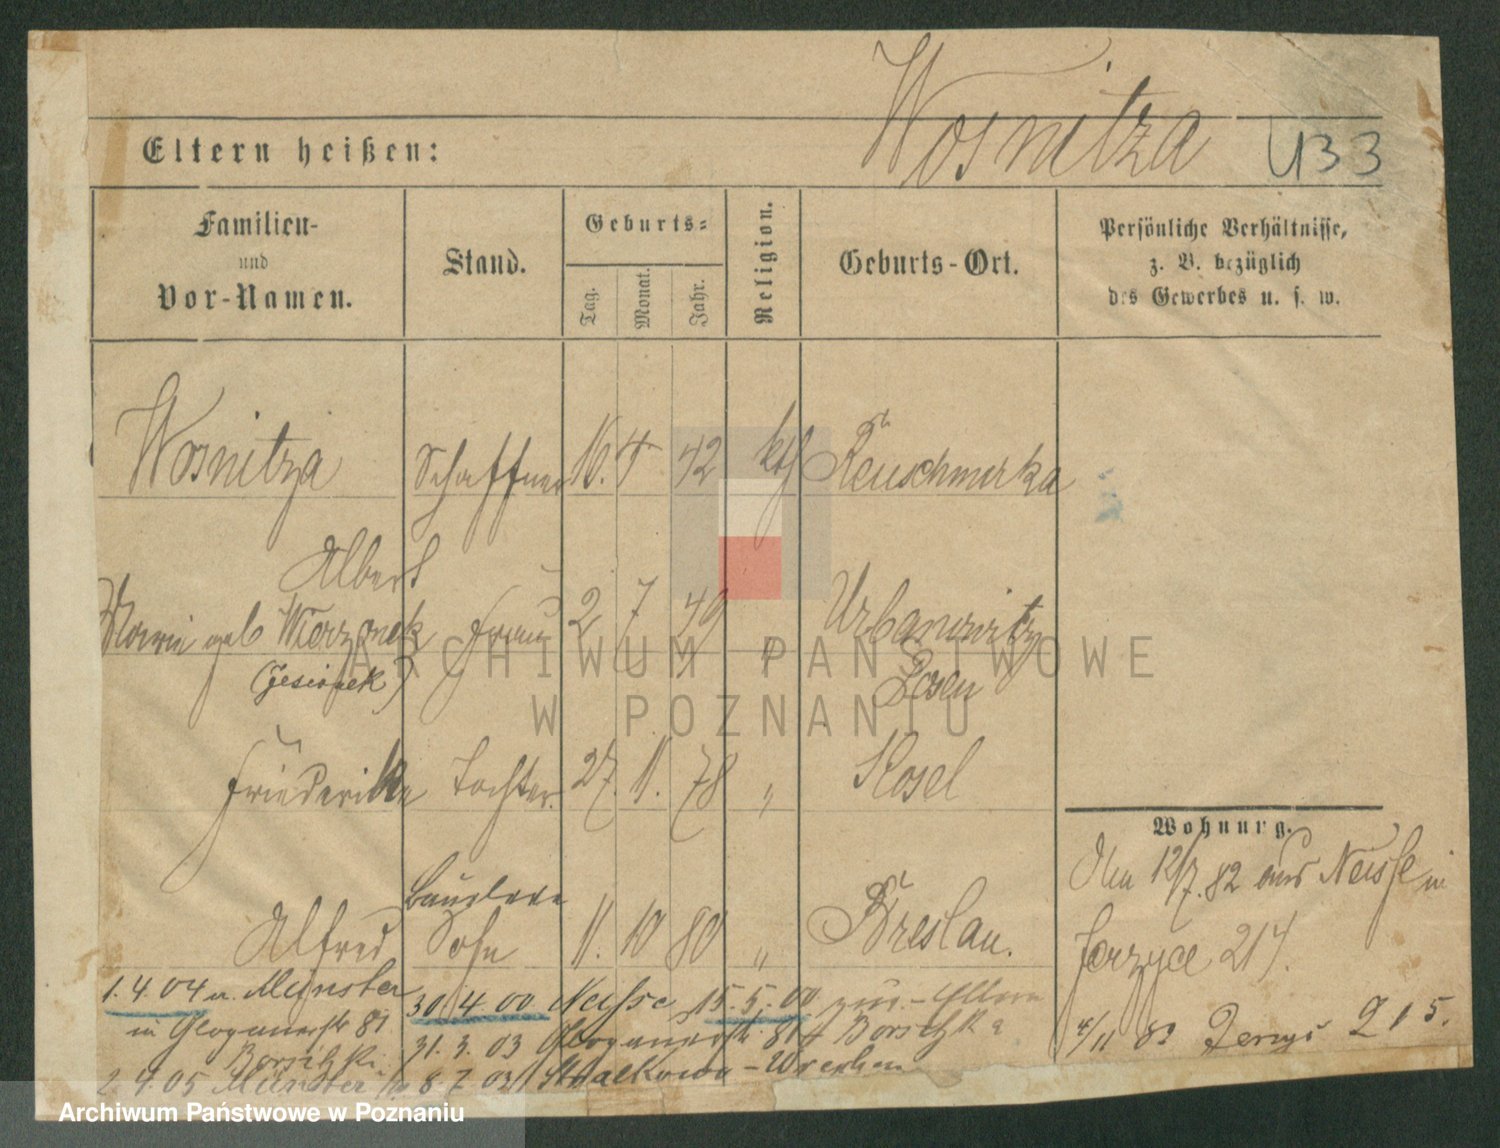 Wosnitza
U33
Eltern heißen:
Familien-
und
Vor-Namen.
Stand.
Geburts=
Tag.
Monat.
Jahr.
Religion.
Geburts-Ort.
Persönliche Verhältnisse,
z. B. bezüglich
des Gewerbes u. s. w.
Wosnitza Schaffner 16. 4 42 kth
Albert
geb Frau 2 7 49 " Urbanowitz
Posen
Friederike Tochter. 27. 11. 78 " Kosel
Wohnung.
Am 12/7. 82 aus Neisse in
Jerzyce 217.
4/11 83 215.
Alfred Sohn 11. 10 80 " Breslau.
1.4.04 n. Münster 30.4.00 Neisse 15.5.00 zur. Eltern
in Glogauerstr 81 31.3.03 Glogauerstr. 81
2.4.05 Münster 8.7.03 Stralkowo - Wreschen
ARCHIWUM PAŃSTWOWE
W POZNANIU
Archiwum Państwowe w Poznaniu